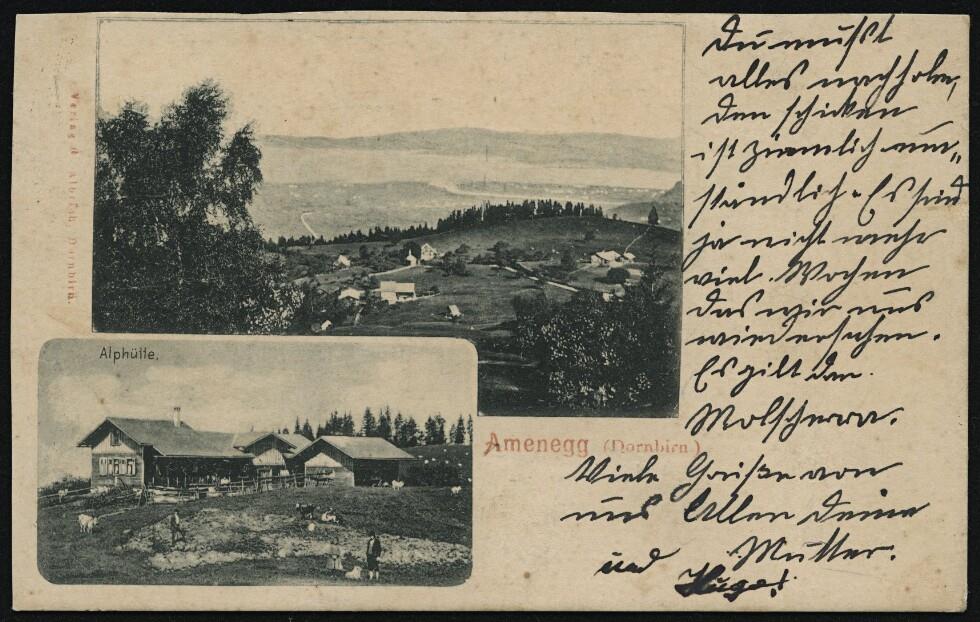 Verlag d. Albrich, Dornbirn.
Alphütte.
Amenegg (Dornbirn)
Du mußt
alles nachholen,
den schicken
ist ziemlich um„
ständlich. Es sind
ja nicht mehr
viel Wochen
das wir uns
wiedersehen.
Es gilt den
Viele Grüße von
uns Allen deine
und Mutter.
Hugo!